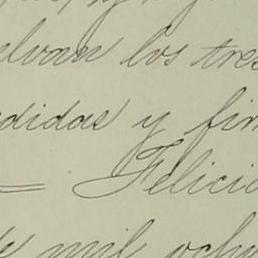 elvan los tres
didas y fin
Felicia
mil ocho